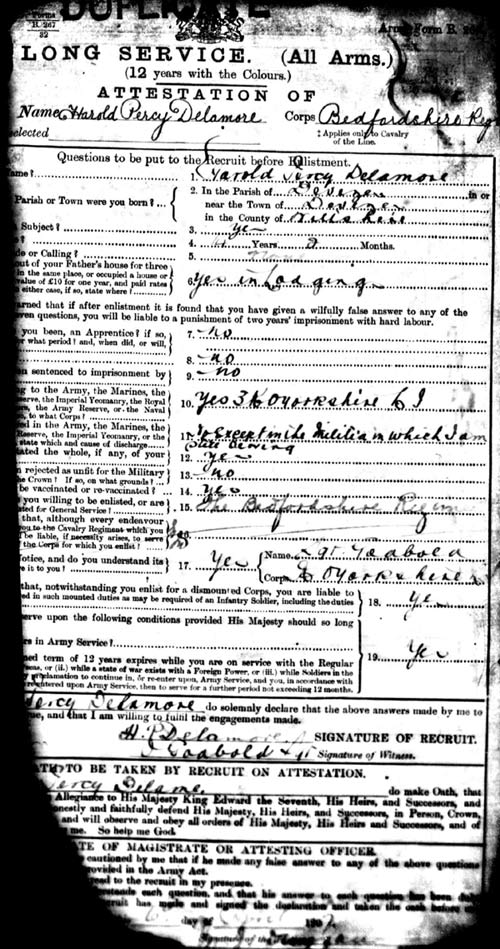 DUPLICATE
Forms
B. 267
82
Army Form B.
LONG SERVICE. (All Arms.)
(12 years with the Colours.)
ATTESTATION OF
Name Harold Percy Delamore Corps Bedfordshire Reg
selected ‡ Applies only to Cavalry
of the Line.
Questions to be put to the Recruit before Enlistment.
ame? 1. Harold Percy Delamore
Parish or Town were you born? 2. In the Parish of in or
near the Town of
in the County of
Subject? 3. Yes
4. Years Months.
de or Calling? 5.
out of your Father's house for three
in the same place, or occupied a house or
value of £10 for one year, and paid rates
in either case, if so, state where? 6. Yes in Lodgings
arned that if after enlistment it is found that you have given a wilfully false answer to any of the
ven questions, you will be liable to a punishment of two years' imprisonment with hard labour.
you been, an Apprentice? if so,
r what period? and, when did, or will, 7. no
8. no
n sentenced to imprisonment by 9. no
g to the Army, the Marines, the
serve, the Imperial Yeomanry, the Royal
rs, the Army Reserve, or the Naval
so, to what Corps? 10. Yes 3
ed in the Army, the Marines, the
Reserve, the Imperial Yeomanry, or the
state which and cause of discharge 11. Except in the Militia in which I am
still serving
tated the whole, if any, of your 12. Yes
n rejected as unfit for the Military
he Crown? If so, on what grounds? 13. no
be vaccinated or re-vaccinated? 14. Yes
you willing to be enlisted, or are
ated for General Service? 15. The Bedfordshire Regim
that, although every endeavour
you to the Cavalry Regiment which you
be liable, if necessity arises, to serve
the Corps for which you enlist? 16.
otice, and do you understand its
ve it to you? 17. Yes Name
Corps
that, notwithstanding you enlist for a dismounted Corps, you are liable to
ed in such mounted duties as may be required of an Infantry Soldier, including the duties 18. Yes
serve upon the following conditions provided His Majesty should so long
rs in Army Service?
ned term of 12 years expires while you are on service with the Regular
ons, or (ii.) while a state of war exists with a Foreign Power, or (iii.) while Soldiers in the
y proclamation to continue in, or re-enter upon, Army Service, and you, in accordance with
re-entered upon Army Service, then to serve for a further period not exceeding 12 months. 19. Yes
Percy Delamore do solemnly declare that the above answers made by me to
ue, and that I am willing to fulfil the engagements made.
H. P. Delamore SIGNATURE OF RECRUIT.
Signature of Witness.
ATH TO BE TAKEN BY RECRUIT ON ATTESTATION.
Percy Delamore do make Oath, that
Allegiance to His Majesty King Edward the Seventh, His Heirs, and Successors, and
onestly and faithfully defend His Majesty, His Heirs, and Successors, in Person, Crown,
and will observe and obey all orders of His Majesty, His Heirs and Successors, and of
me. So help me God.
ATE OF MAGISTRATE OR ATTESTING OFFICER.
cautioned by me that if he made any false answer to any of the above questions
provided in the Army Act.
read to the recruit in my presence.
rstands each question, and that his answer to each question has been duly
cruit has made and signed the declaration and taken the oath before me
day of 190
Signature of the